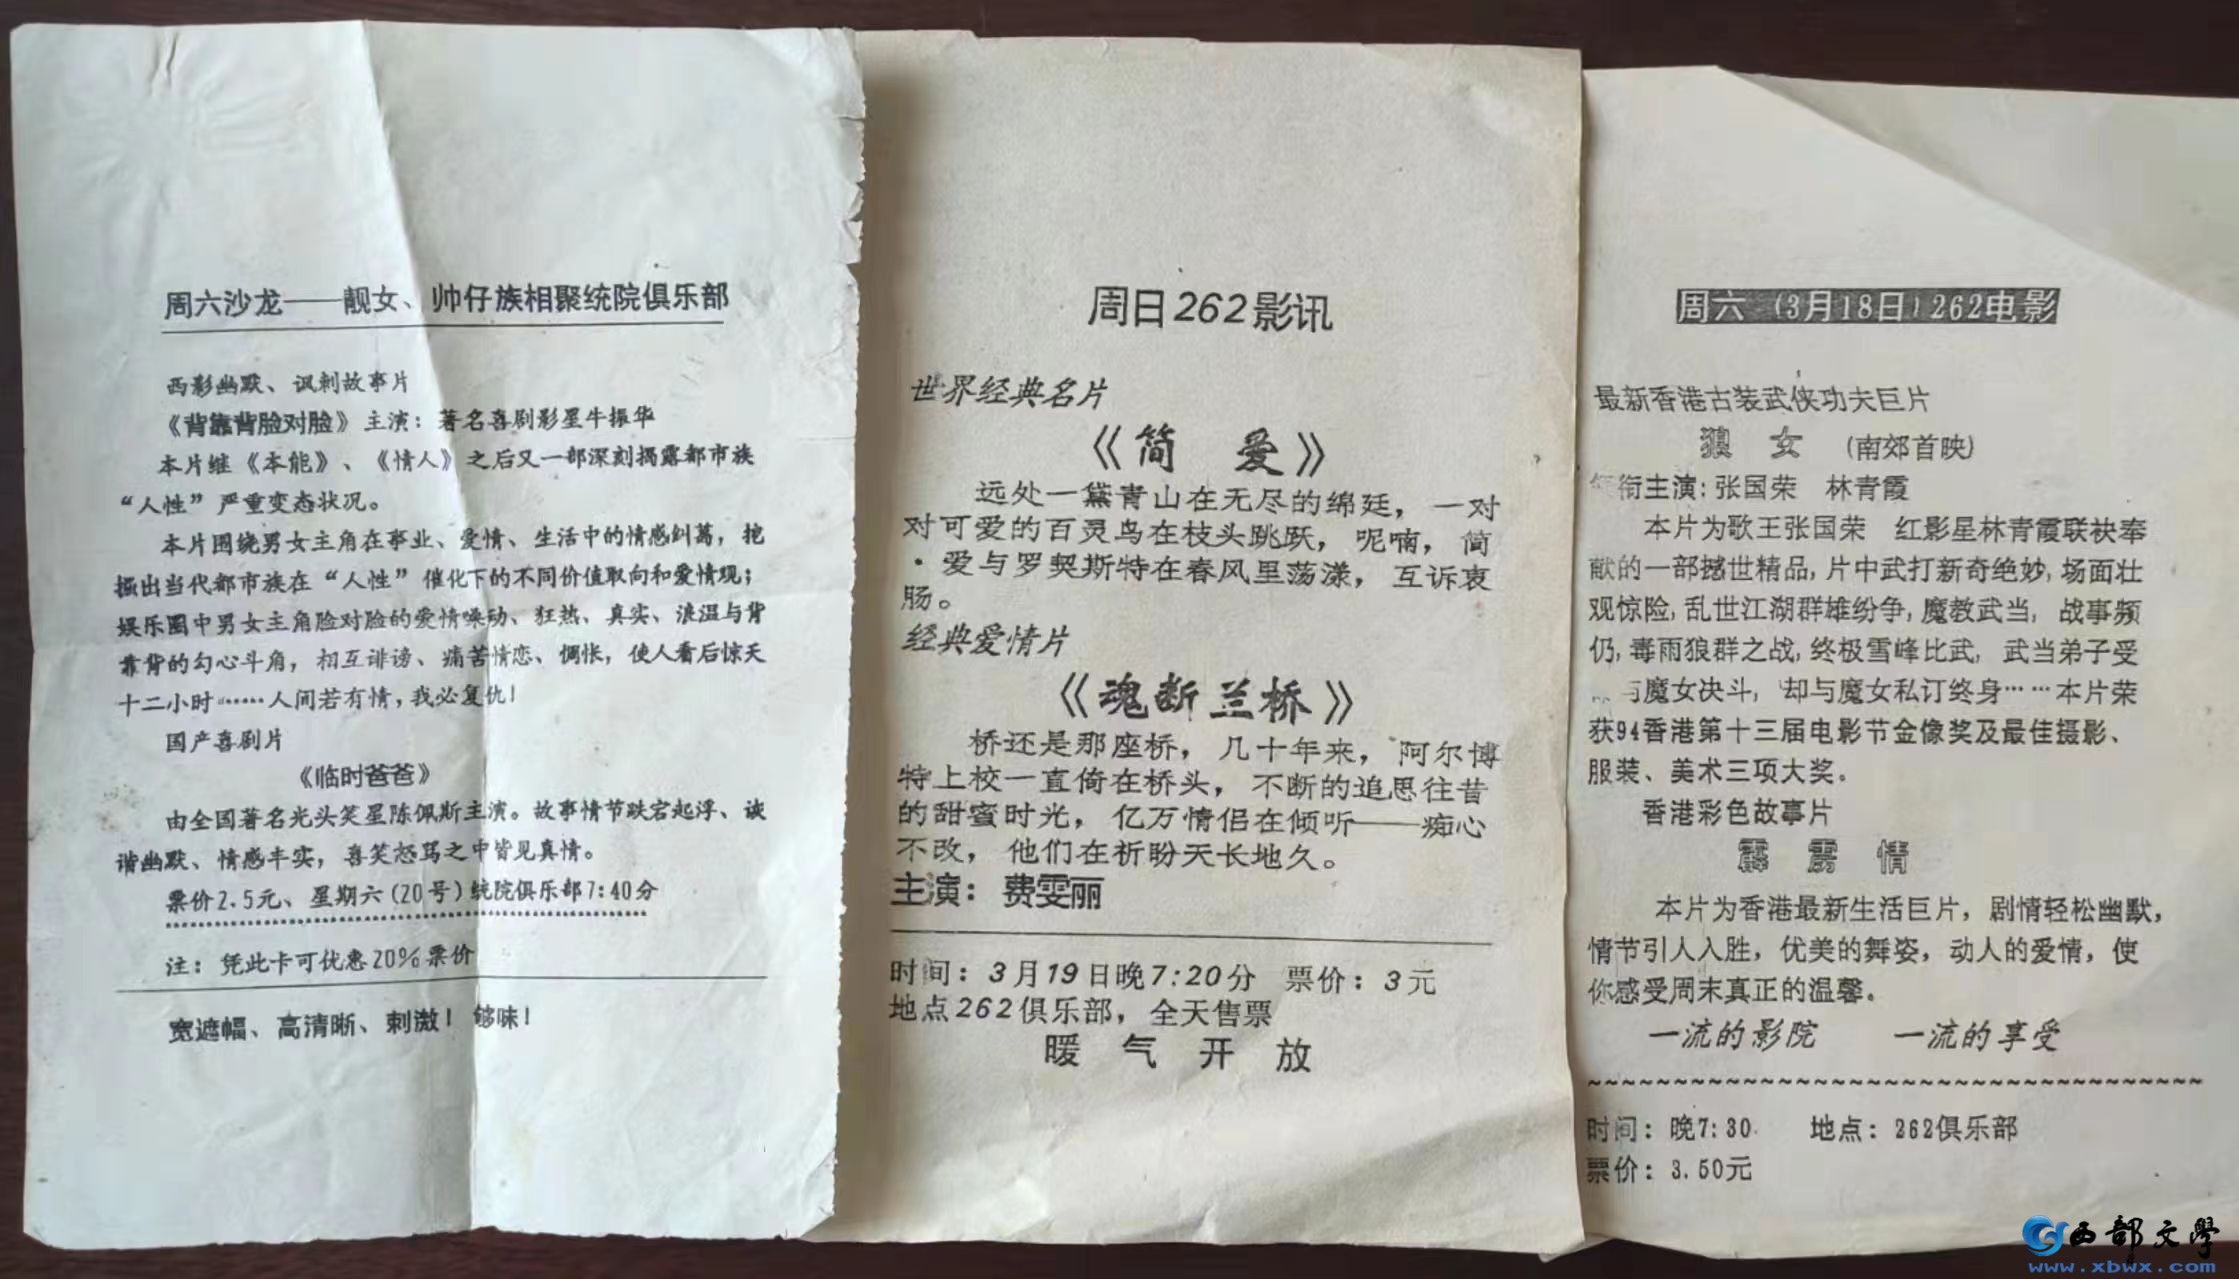 周六沙龙——靓女、帅仔族相聚统院俱乐部
西影幽默、讽刺故事片
《背靠背脸对脸》主演：著名喜剧影星牛振华
本片继《本能》、《情人》之后又一部深刻揭露都市族
“人性”严重变态状况。
本片围绕男女主角在事业、爱情、生活中的情感纠葛，挖
掘出当代都市族在“人性”催化下的不同价值取向和爱情观；
娱乐圈中男女主角脸对脸的爱情噪动、狂热、真实、浪温与背
靠背的勾心斗角，相互诽谤、痛苦情恋、惆怅，使人看后惊天
十二小时……人间若有情，我必复仇！
国产喜剧片
《临时爸爸》
由全国著名光头笑星陈佩斯主演。故事情节跌宕起浮、诙
谐幽默、情感丰实，喜笑怒骂之中皆见真情。
票价2.5元、星期六(20号)统院俱乐部7:40分
注：凭此卡可优惠20%票价
宽遮幅、高清晰、刺激！够味！
周日262影讯
世界经典名片
《简 爱》
远处一黛青山在无尽的绵廷，一对
对可爱的百灵鸟在枝头跳跃，呢喃，简
·爱与罗契斯特在春风里荡漾，互诉衷
肠。
经典爱情片
《魂断兰桥》
桥还是那座桥，几十年来，阿尔博
特上校一直倚在桥头，不断的追思往昔
的甜蜜时光，亿万情侣在倾听——痴心
不改，他们在祈盼天长地久。
主演：费雯丽
时间：3月19日晚7:20分 票价：3元
地点262俱乐部，全天售票
暖 气 开 放
周六（3月18日）262电影
最新香港古装武侠功夫巨片
狼 女 （南郊首映）
衔主演：张国荣 林青霞
本片为歌王张国荣 红影星林青霞联袂奉
献的一部撼世精品，片中武打新奇绝妙，场面壮
观惊险，乱世江湖群雄纷争，魔教武当，战事频
仍，毒雨狼群之战，终极雪峰比武，武当弟子受
与魔女决斗，却与魔女私订终身……本片荣
获94香港第十三届电影节金像奖及最佳摄影、
服装、美术三项大奖。
香港彩色故事片
霹 雳 情
本片为香港最新生活巨片，剧情轻松幽默，
情节引人入胜，优美的舞姿，动人的爱情，使
你感受周末真正的温馨。
一流的影院 一流的享受
时间：晚7:30 地点：262俱乐部
票价：3.50元
西部文学
www.xbwx.com